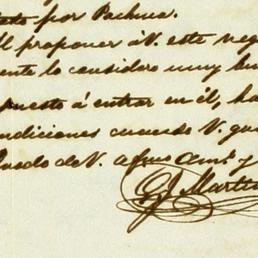 por Pachuca.
Al proponer á V. este neg
ente lo considero muy bue
puesto á entrar en él, ha
ndiciones cuando V. gus
Quedo de V. afmo Amº. y
G J Martin